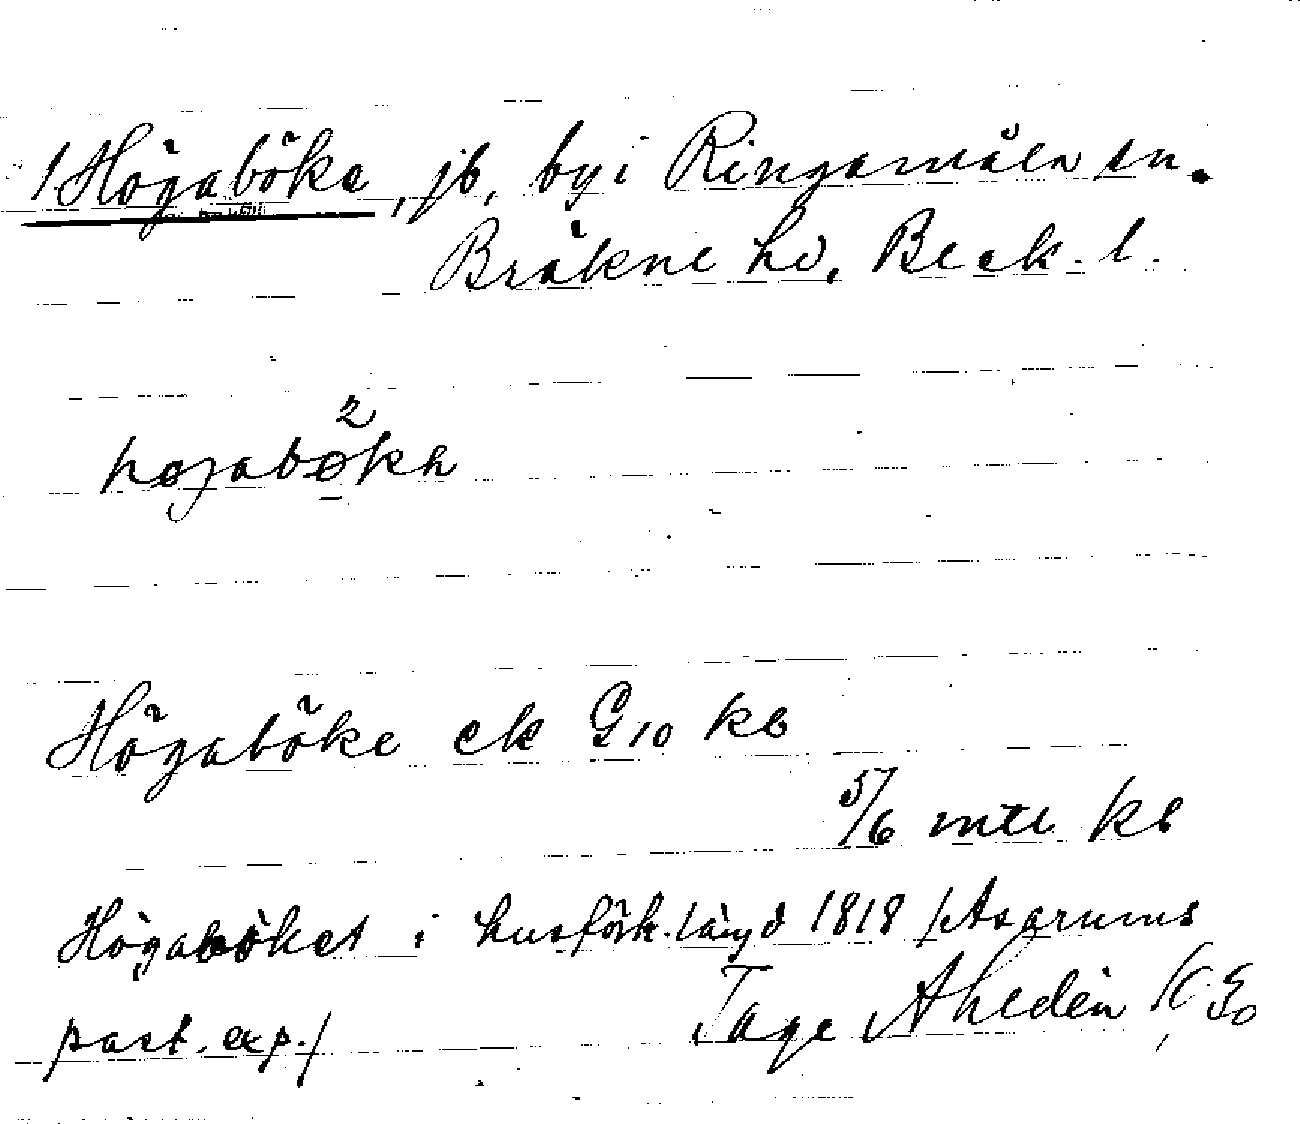 1 Högaböke, jb, by i Ringamåla sn.
Bräkne hd, Bleck. l.
2
høgabökh
Högaböke ek G10 kb
5/6 mtl kb
Högaböket i husförh.längd 1818 /Asarums
past. exp./
Tage Ahledin 1930